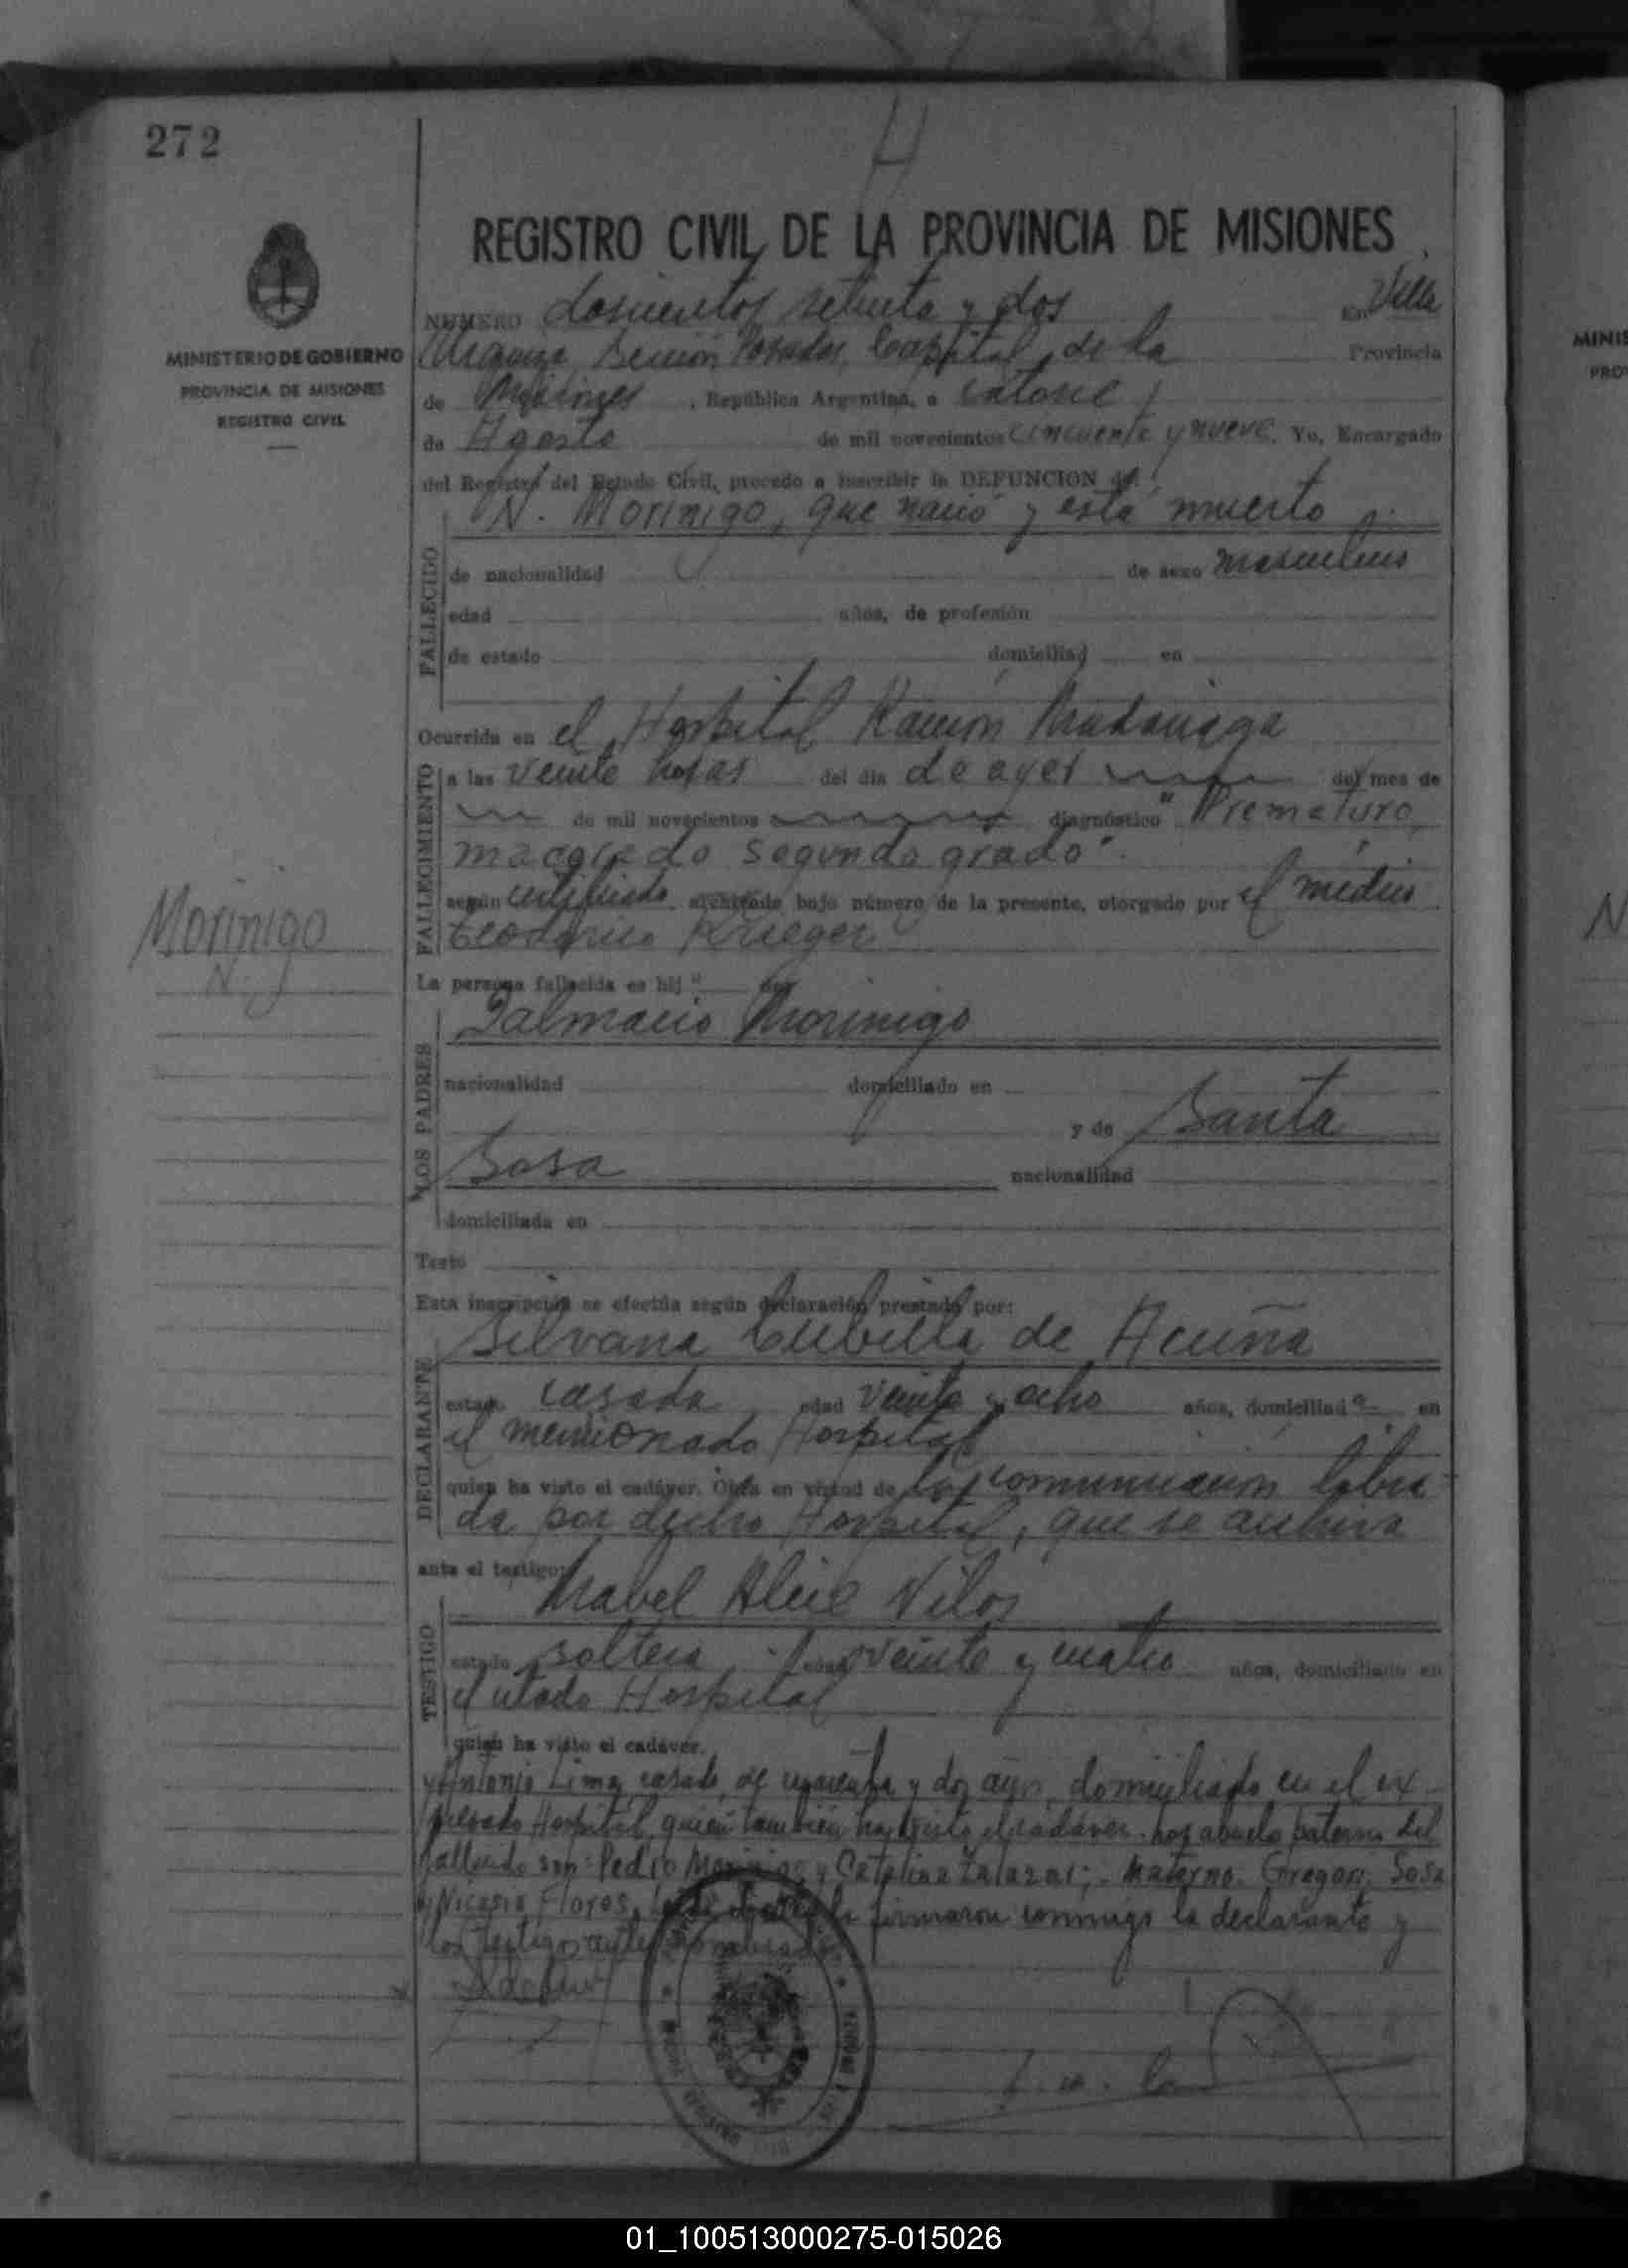 272
REGISTRO CIVIL DE LA PROVINCIA DE MISIONES
MINISTERIO DE GOBIERNO
PROVINCIA DE MISIONES
REGISTRO CIVIL
NUMERO doscientos setenta y dos En Villa
Urquiza Sección Posadas, Capital de la Provincia
de Misiones, República Argentina, a catorce
de Agosto de mil novecientos cincuenta y nueve. Yo, Encargado
del Registro del Estado Civil, procedo a inscribir la DEFUNCION de
N. Morinigo, que nació y está muerto
FALLECIDO
de nacionalidad de sexo masculino
edad años, de profesión
de estado domiciliad en
Ocurrida en el Hospital Ramón Madariaga
FALLECIMIENTO
a las veinte horas del dia de ayer del mes de
de mil novecientos diagnóstico "Prematuro
macerado segundo grado".
según certificado archivado bajo número de la presente, otorgado por el médico
Teodorico Krieger
Morinigo
N.
La persona fallecida es hij o de
LOS PADRES
Dalmacio Morinigo
nacionalidad domiciliado en
y de Santa
Sosa nacionalidad
domiciliada en
Testó
Esta inscripción se efectúa según declaración prestada por:
DECLARANTE
Silvana Cubilla de Acuña
estado casada edad veinte y ocho años, domiciliad a en
el mencionado Hospital
quien ha visto el cadáver. Obra en virtud de la comunicación libra-
da por dicho Hospital, que se archiva
ante el testigo:
TESTIGO
Mabel Alice Vilos
estado soltera, edad veinte y cuatro años, domiciliado en
el citado Hospital
quien ha visto el cadáver.
y Antonio Lima, casado, de cuarenta y dos años, domiciliado en el ex-
presado Hospital, quien también ha visto el cadáver. Los abuelos paternos del
fallecido son: Pedro Morinigo y Catalina Zalazar; Materno. Gregori Sosa
y Nicasia Flores. Leída el acta la firmaron conmigo la declarante y
los testigos antes nombrados
01_100513000275-015026